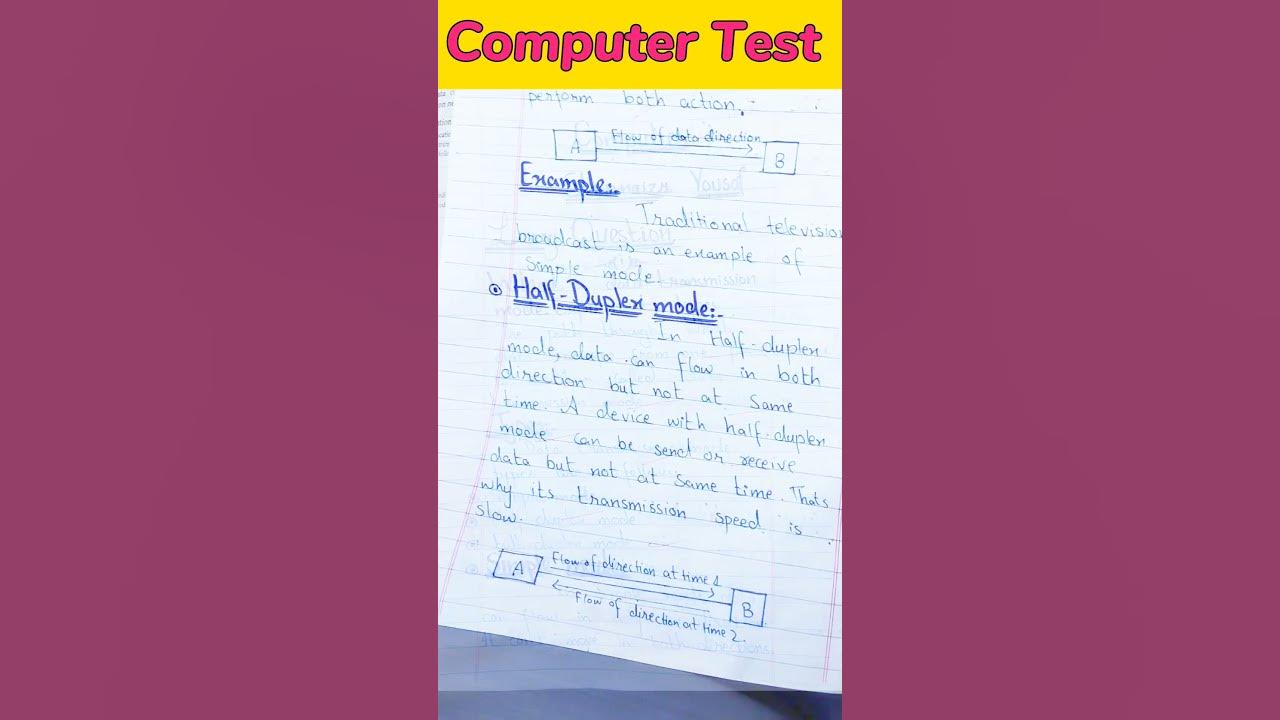 Computer Test
perform both action.:-
Flow of data direction
A
B
Example:-
Yousaf
Traditional television
broadcast is an example of
Simple mode.
Half-Duplex mode:-
In Half-duplex
mode, data can flow in both
direction but not at same
time. A device with half-duplex
mode can be send or receive
data but not at same time. Thats
why its transmission speed is
slow.
A
Flow of direction at time 1
B
Flow of direction at time 2.